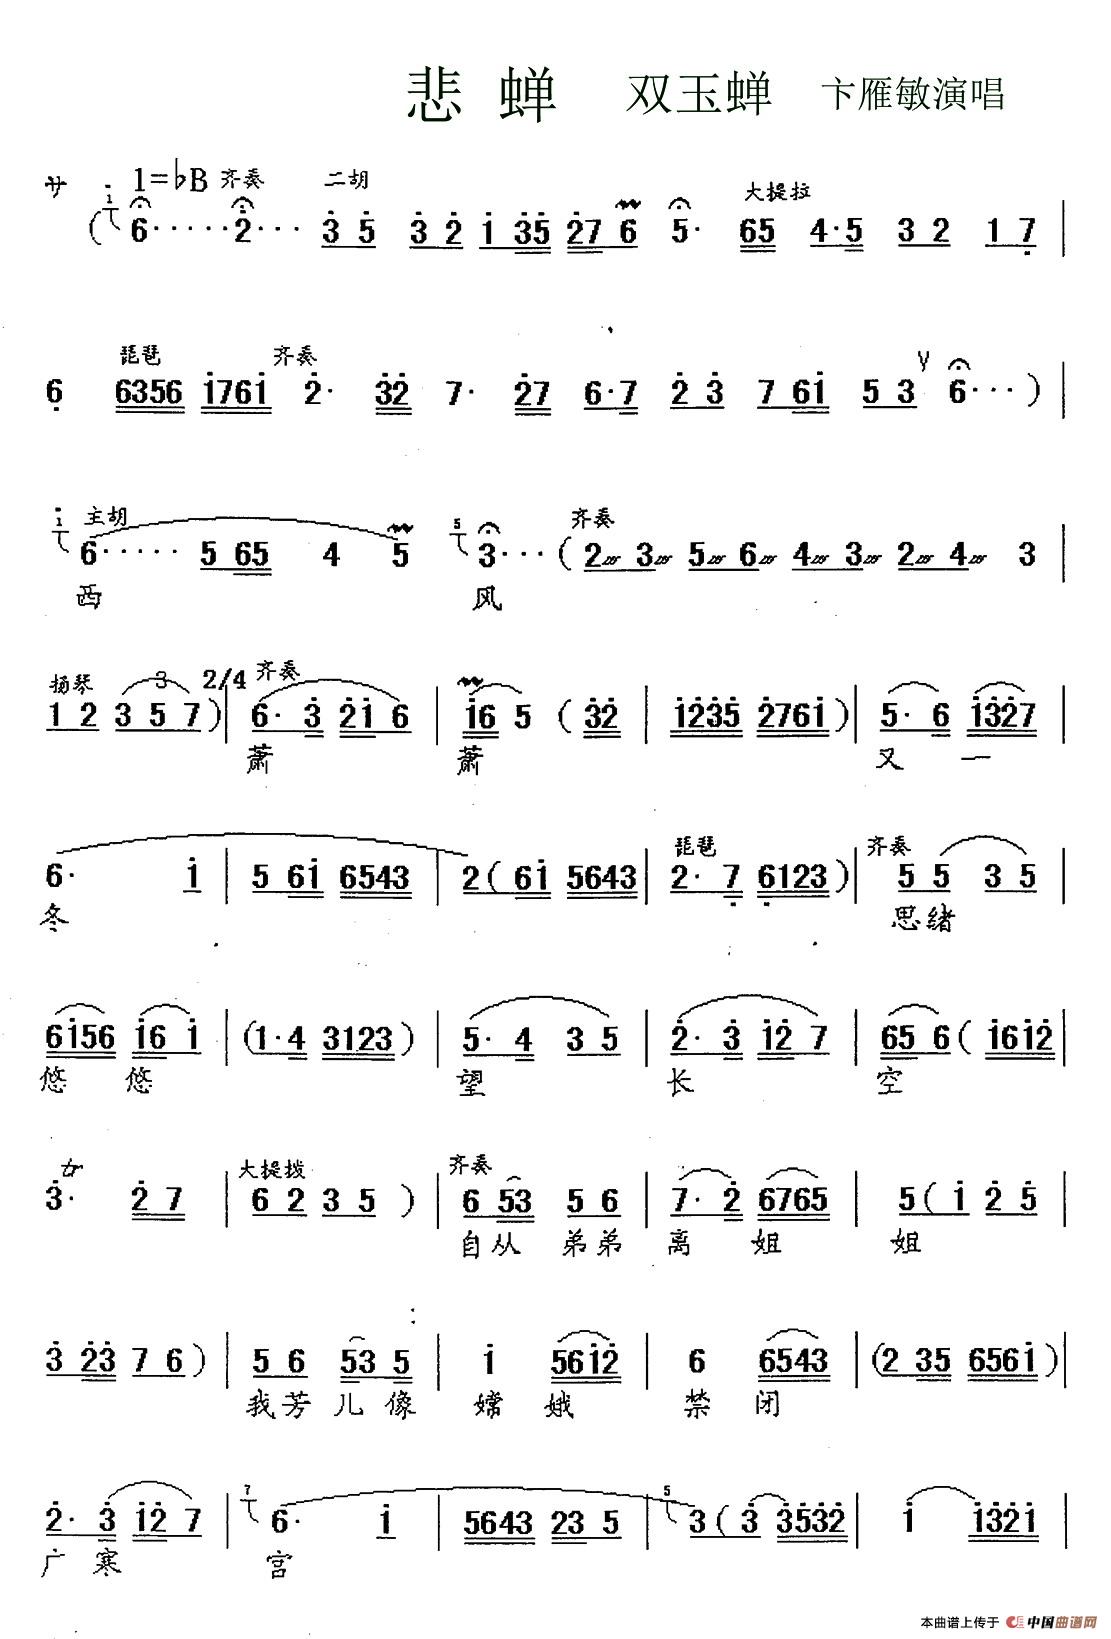 悲 蝉 双玉蝉 卞雁敏演唱
サ 1=♭B 齐奏 二胡 大提拉
( 1 6····· 2··· 3 5 3 2 1 35 27 6 5· 65 4·5 3 2 1 7 |
琵琶 齐奏
6 6356 1761 2· 32 7· 27 6·7 2 3 7 61 5 3 V 6··· ) |
主胡 齐奏
1 6····· 5 65 4 5 5 3··· ( 2 3 5 6 4 3 2 4 3 |
西 风
扬琴 3 2/4 齐奏
1 2 3 5 7 ) | 6· 3 21 6 | 16 5 ( 32 | 1235 2761 ) | 5· 6 1327 |
萧 萧 又 一
琵琶 齐奏
6· 1 | 5 61 6543 | 2 ( 61 5643 | 2· 7 6123 ) | 5 5 3 5 |
冬 思绪
6156 16 1 | (1·4 3123 ) | 5· 4 3 5 | 2· 3 12 7 | 65 6 ( 1612 |
悠 悠 望 长 空
tr 大提拨 齐奏
3· 27 | 6 2 3 5 ) | 6 53 5 6 | 7· 2 6765 | 5 ( 1 2 5 |
自从 弟弟 离 姐 姐
3 23 7 6 ) | 5 6 53 5 | 1 5612 | 6 6543 | (2 35 6561 ) |
我芳 儿 像 嫦 娥 禁 闭
2· 3 12 7 | 7 6· 1 | 5643 23 5 | 5 3 ( 3 3532 | 1 1321 |
广 寒 宫
本曲谱上传于 中国曲谱网